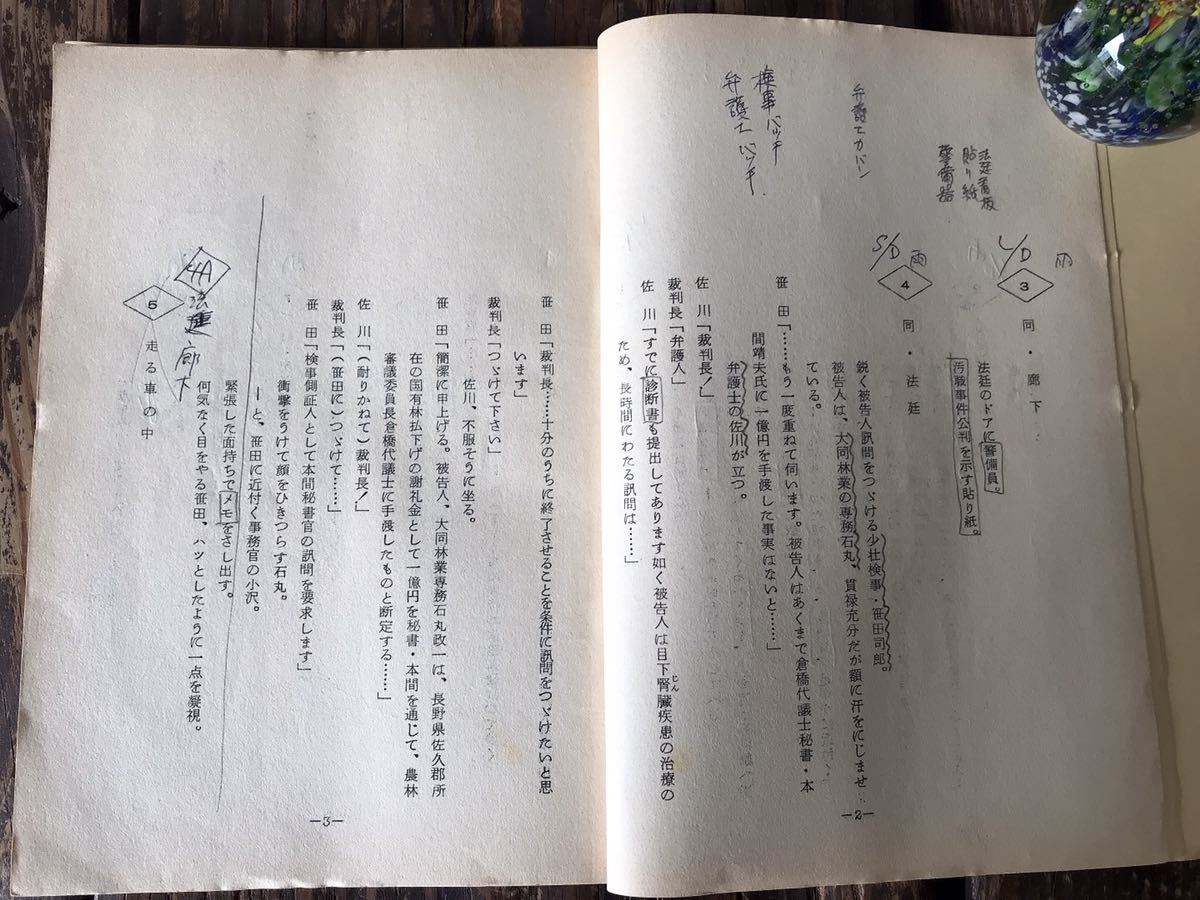 法廷看板
貼り紙
警備器
弁護士カバン
検事バッチ
弁護士バッチ
L/D 雨
3 同・廊下
法廷のドアに警備員。
汚職事件公判を示す貼り紙。
S/D 雨
4 同・法廷
鋭く被告人訊問をつゞける少壮検事・笹田司郎。
被告人は、大同林業の専務石丸、貫禄充分だが額に汗をにじませ
ている。
笹田「……もう一度重ねて伺います。被告人はあくまで倉橋代議士秘書・本
間靖夫氏に一億円を手渡した事実はないと……」
弁護士の佐川が立つ。
佐川「裁判長！」
裁判長「弁護人」
佐川「すでに診断書も提出してあります如く被告人は目下腎臓疾患の治療の
じん
ため、長時間にわたる訊問は……」
―2―
笹田「裁判長……十分のうちに終了させることを条件に訊問をつゞけたいと思
います」
裁判長「つゞけて下さい」
佐川、不服そうに坐る。
笹田「簡潔に申上げる。被告人、大同林業専務石丸政一は、長野県佐久郡所
在の国有林払下げの謝礼金として一億円を秘書・本間を通じて、農林
審議委員長倉橋代議士に手渡したものと断定する……」
佐川「（耐りかねて）裁判長！」
裁判長「（笹田に）つゞけて……」
笹田「検事側証人として本間秘書官の訊問を要求します」
衝撃をうけて顔をひきつらす石丸。
―と、笹田に近付く事務官の小沢。
緊張した面持ちでメモをさし出す。
何気なく目をやる笹田、ハッとしたように一点を凝視。
4A 法廷廊下
5 走る車の中
―3―